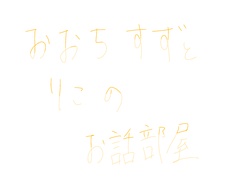 おおちすずと
りこの
お話部屋